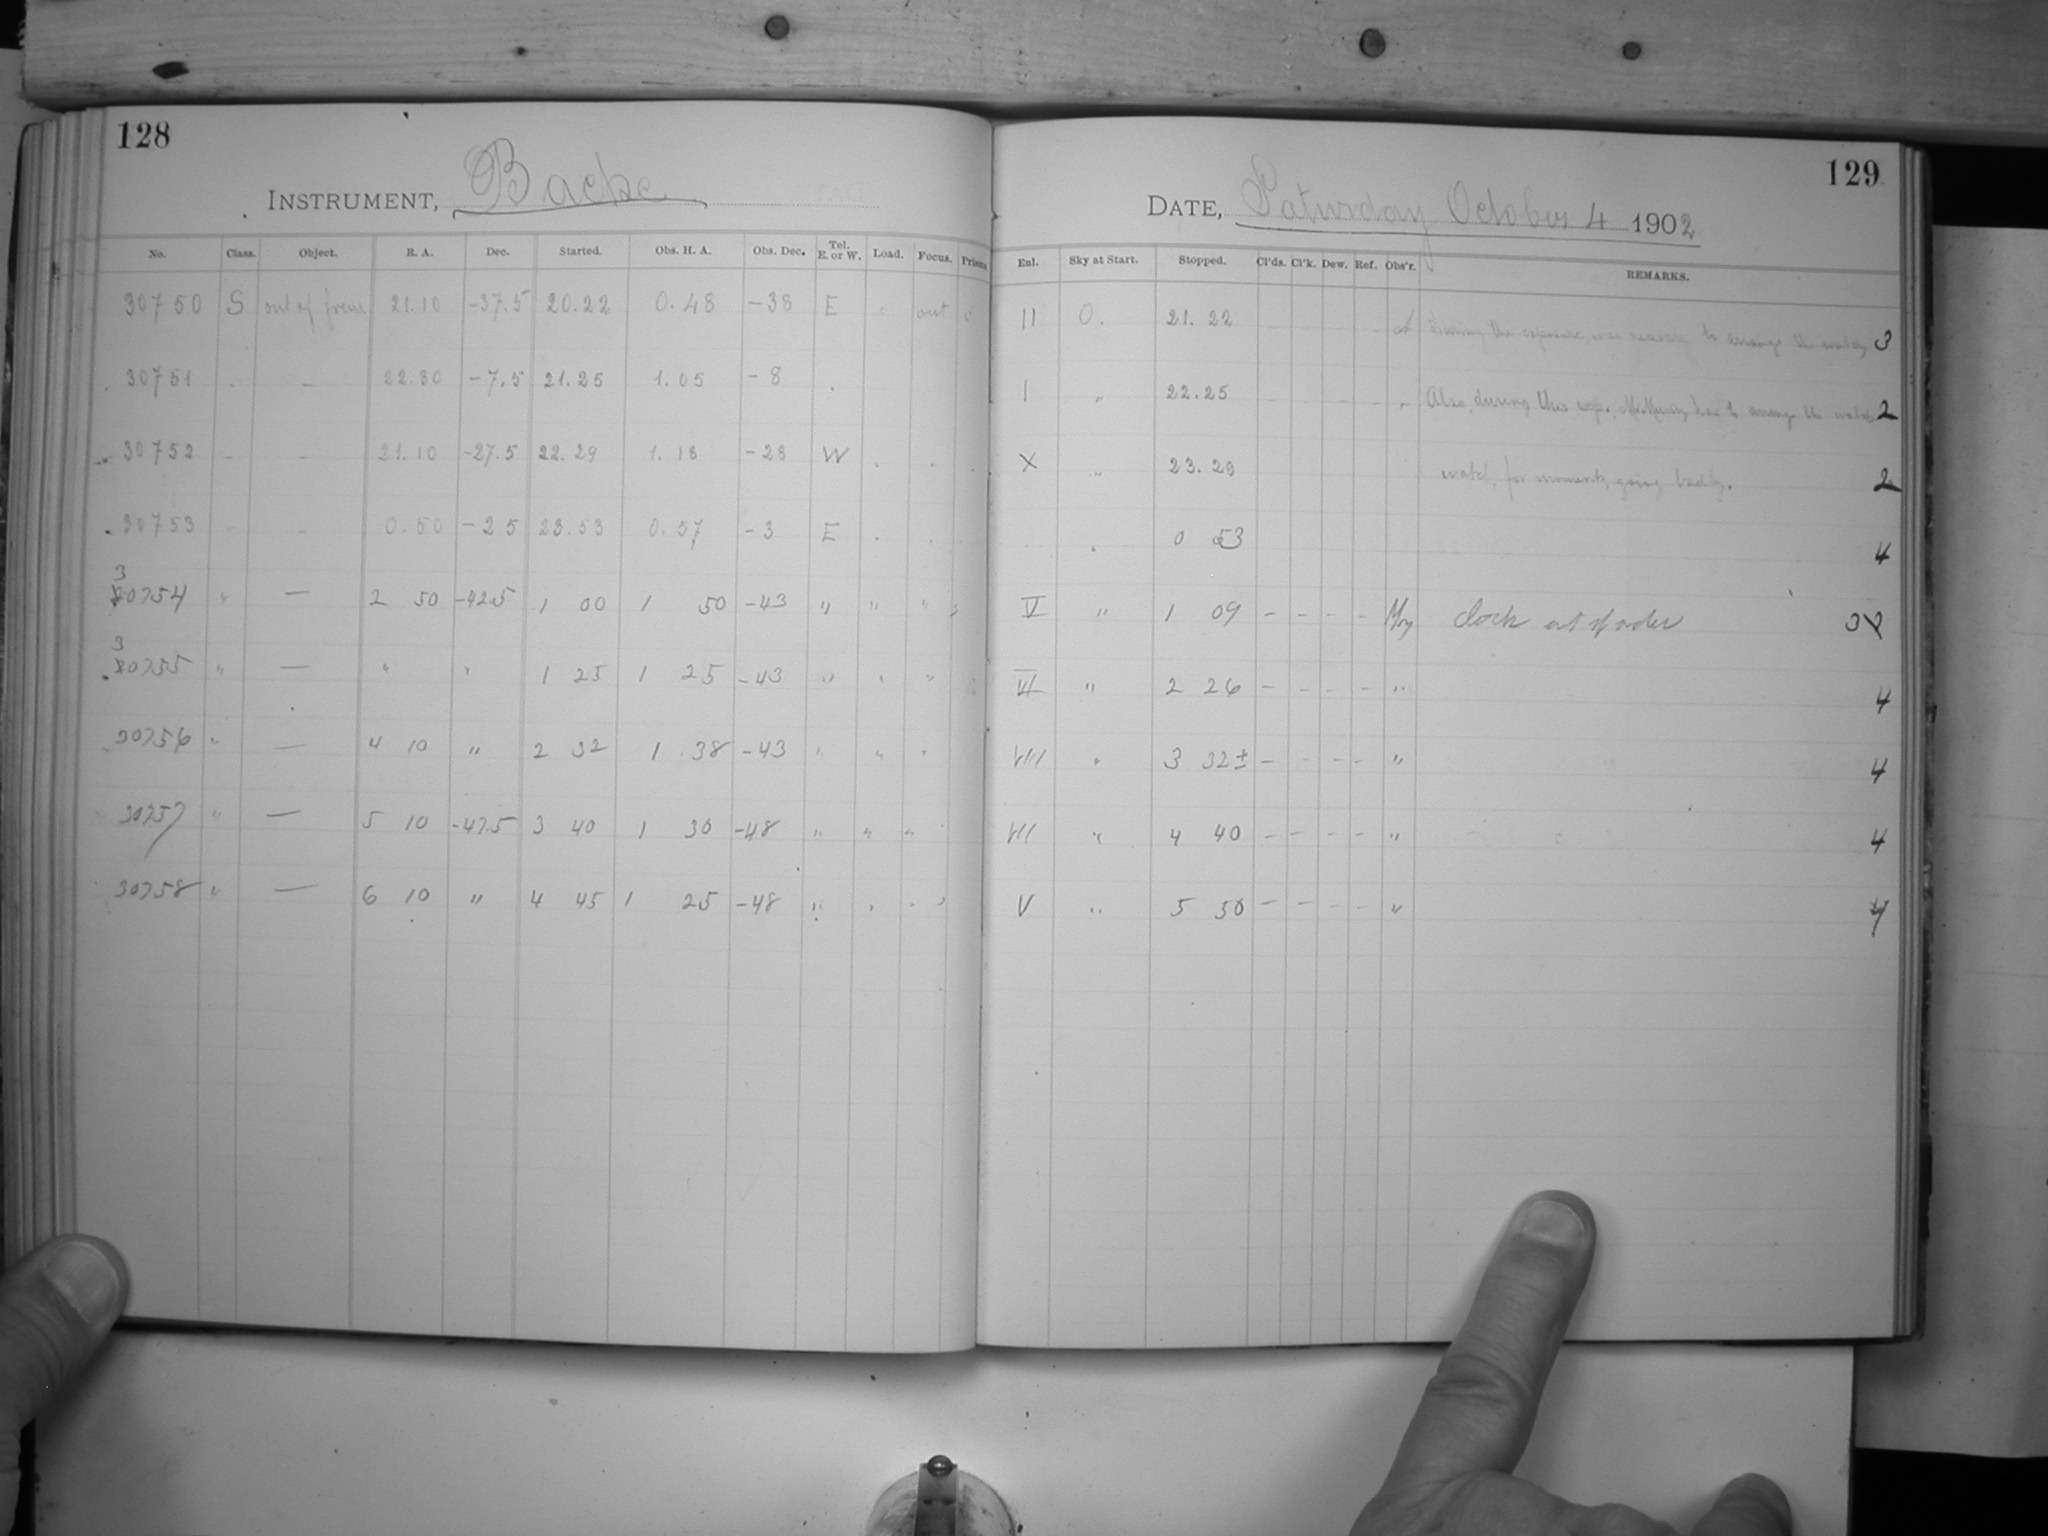 128
INSTRUMENT, Bache
No. Class. Object. R. A. Dec. Started. Obs. H. A. Obs. Dec. Tel. E. or W. Load. Focus. Prisms
30750 S out of 21.10 -37.5 20.22 0.48 -38 E out
30751 - 22.30 -7.5 21.25 1.05 -8
30752 - - 21.10 -27.5 22.29 1.18 -28 W
30753 - - 0.50 -2 5 23.53 0.57 -3 E
30754 " — 2 50 -42.5 1 00 1 50 -43 " " "
30755 " — " " 1 25 1 25 -43 " " "
30756 " — 4 10 " 2 32 1 38 -43 " " "
30757 " — 5 10 -47.5 3 40 1 30 -48 " " "
30758 " — 6 10 " 4 45 1 25 -48 "
129
DATE, Saturday October 4 1902
Enl. Sky at Start. Stopped. Cl'ds. Cl'k. Dew. Ref. Obs'r. REMARKS.
II 0. 21.22 During the exposure, was necessary to arrange the watch 3
I " 22.25 Also, during this exp., had to arrange the watch 2
X " 23.29 watch, for moments, going badly. 2
" 0 53 4
V " 1 09 - - - - clock out of order 3
VI " 2 26 - - - - " 4
VIII " 3 32± - - - - " 4
VII " 4 40 - - - - " 4
V " 5 50 - - - - " 4